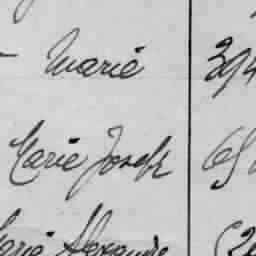 Marié 394
Marie Joseph 65
Marie Alexandre (2